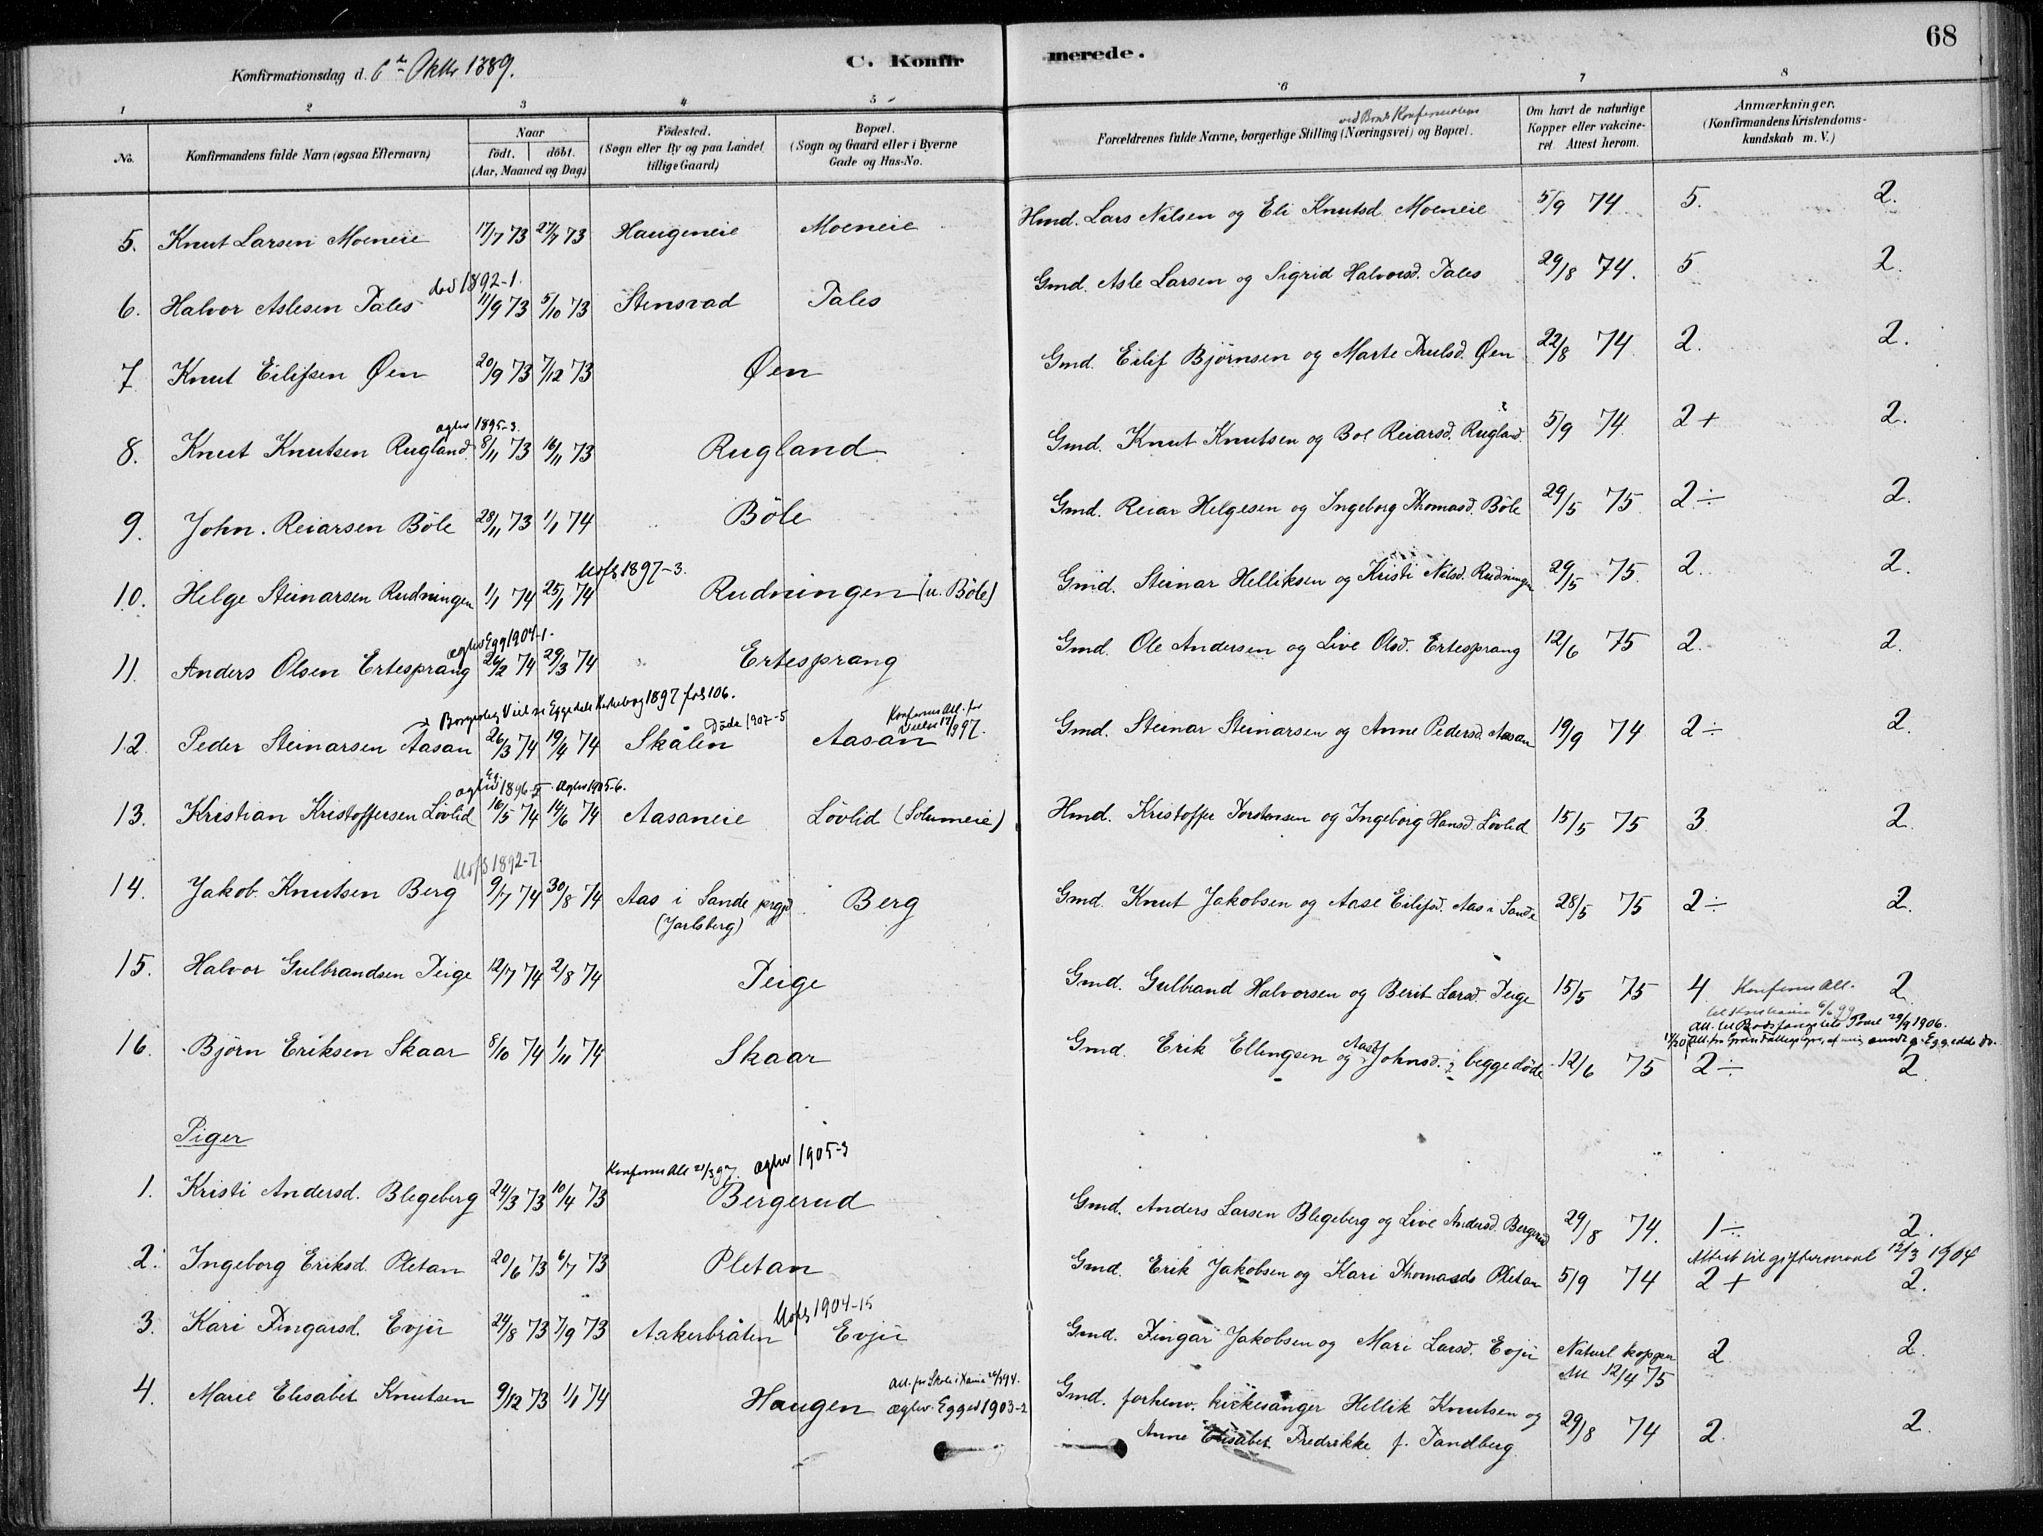 68
Konfirmationsdag d. 6te Oktbr 1889.
C. Konfirmerede.
1 2 3 4 5 6 7 8
No. Konfirmandens fulde Navn (ogsaa Efternavn) Naar födt. döbt. (Aar, Maaned og Dag) Födested. (Sogn eller By og paa Landet tillige Gaard) Bopæl. (Sogn og Gaard eller i Byerne Gade og Hus-No. Forældrenes fulde Navne, borgerlige Stilling (Næringsvei) og Bopæl. Om havt de naturlige Kopper eller vakcineret. Attest herom. Anmærkninger. (Konfirmandens Kristendomskundskab m. V.)
5. Knut Larsen Moeneie 17/7 73 27/7 73 Haugeneie Moeneie Hmd. Lars Nilsen og Eli Knutsd. Moeneie 5/9 74 5. 2.
død 1892-1.
6. Halvor Aslesen Tales 11/9 73 5/10 73 Stensvad Tales Gmd. Asle Larsen og Sigrid Halvorsd. Tales 29/8 74. 5 2.
7 Knut Eilifsen Øen 20/9 73 7/12 73 Øen Gmd. Eilif Björnsen og Marte Trulsd. Øen 22/8 74 2. 2.
1895-3.
8. Knut Knutsen Rugland 8/11 73 16/11 73 Rugland Gmd. Knut Knutsen og Bol Reiarsd. Rugland 5/9 74. 2+ 2.
9. John. Reiarsen Böle 28/11 73 1/1 74 Böle Gmd. Reiar Helgesen og Ingeborg Thomasd. Böle 29/5 75 2÷ 2.
1897-3.
10. Helge Steinarsen Rudningen 1/1 74 25/1 74 Rudningen (u. Böle) Gmd. Steinar Helliksen og Kristi Nilsd. Rudningen 29/5 75. 2. 2.
Egg 1904-1.
11. Anders Olsen Ertesprang 26/2 74 29/3 74 Ertesprang Gmd. Ole Andersen og Live Olsd. Ertesprang 12/6 75 2. 2.
Borgerlig Viet se Eggedals Kirkebog 1897 fol 106.
Döde 1907-5
12. Peder Steinarsen Aasan 26/3 74 19/4 74 Skålen Aasan Gmd. Steinar Steinarsen og Anne Pedersd. Aasan 19/9 74 2÷ 2.
1896-5 1905-6.
13. Kristian Kristoffersen Lövlid 16/5 74 14/6 74 Aasaneie Lövlid (Solumeie) Hmd. Kristoffer Torstensen og Ingeborg Hansd. Lövlid 15/5 75 3 2.
1892-7.
14. Jakob Knutsen Berg 9/7 74 30/8 74 Aas i Sande prgjd (Jarlsberg) Berg Gmd. Knut Jakobsen og Aase Eilifsd. Aas i Sande 28/5 75 2÷ 2.
15. Halvor Gulbrandsen Teige 12/7 74 2/8 74 Teige Gmd. Gulbrand Halvorsen og Berit Larsd. Teige 15/5 75 4 Konfirms Att. 2
til Kristiania 6/6 99
29/9 1906.
16. Björn Eriksen Skaar 8/10 74 1/11 74 Skaar Gmd. Erik Ellingsen og Aase Johnsd. beggedöde 12/6 75 2÷ 2
Piger
1905-3
1. Kristi Andersd. Blegeberg 24/3 73 10/4 73 Bergerud Gmd. Anders Larsen Blegeberg og Live Andersd. Bergerud 29/8 74. 1÷ 2.
Attest til giftermaal 12/3 1904
2. Ingeborg Eriksd. Pletan 20/6 73 6/7 73 Pletan Gmd. Erik Jakobsen og Kari Thomasd. Pletan 5/9 74 2+ 2.
1904-15
3. Kari Fingarsd. Evju 24/8 73 7/9 73 Aakerbråten Evju Gmd. Fingar Jakobsen og Mari Larsd. Evju Naturl. kopper Att 12/4 75 2 2.
4. Marie Elisabet Knutsen 9/12 73 1/1 74 Haugen Egged 1903-2 Gmd. forhenv. kirkesanger Hellik Knutsen og
Anne Elisabet Fredrikke f. Tandberg 29/8 74 2. 2.